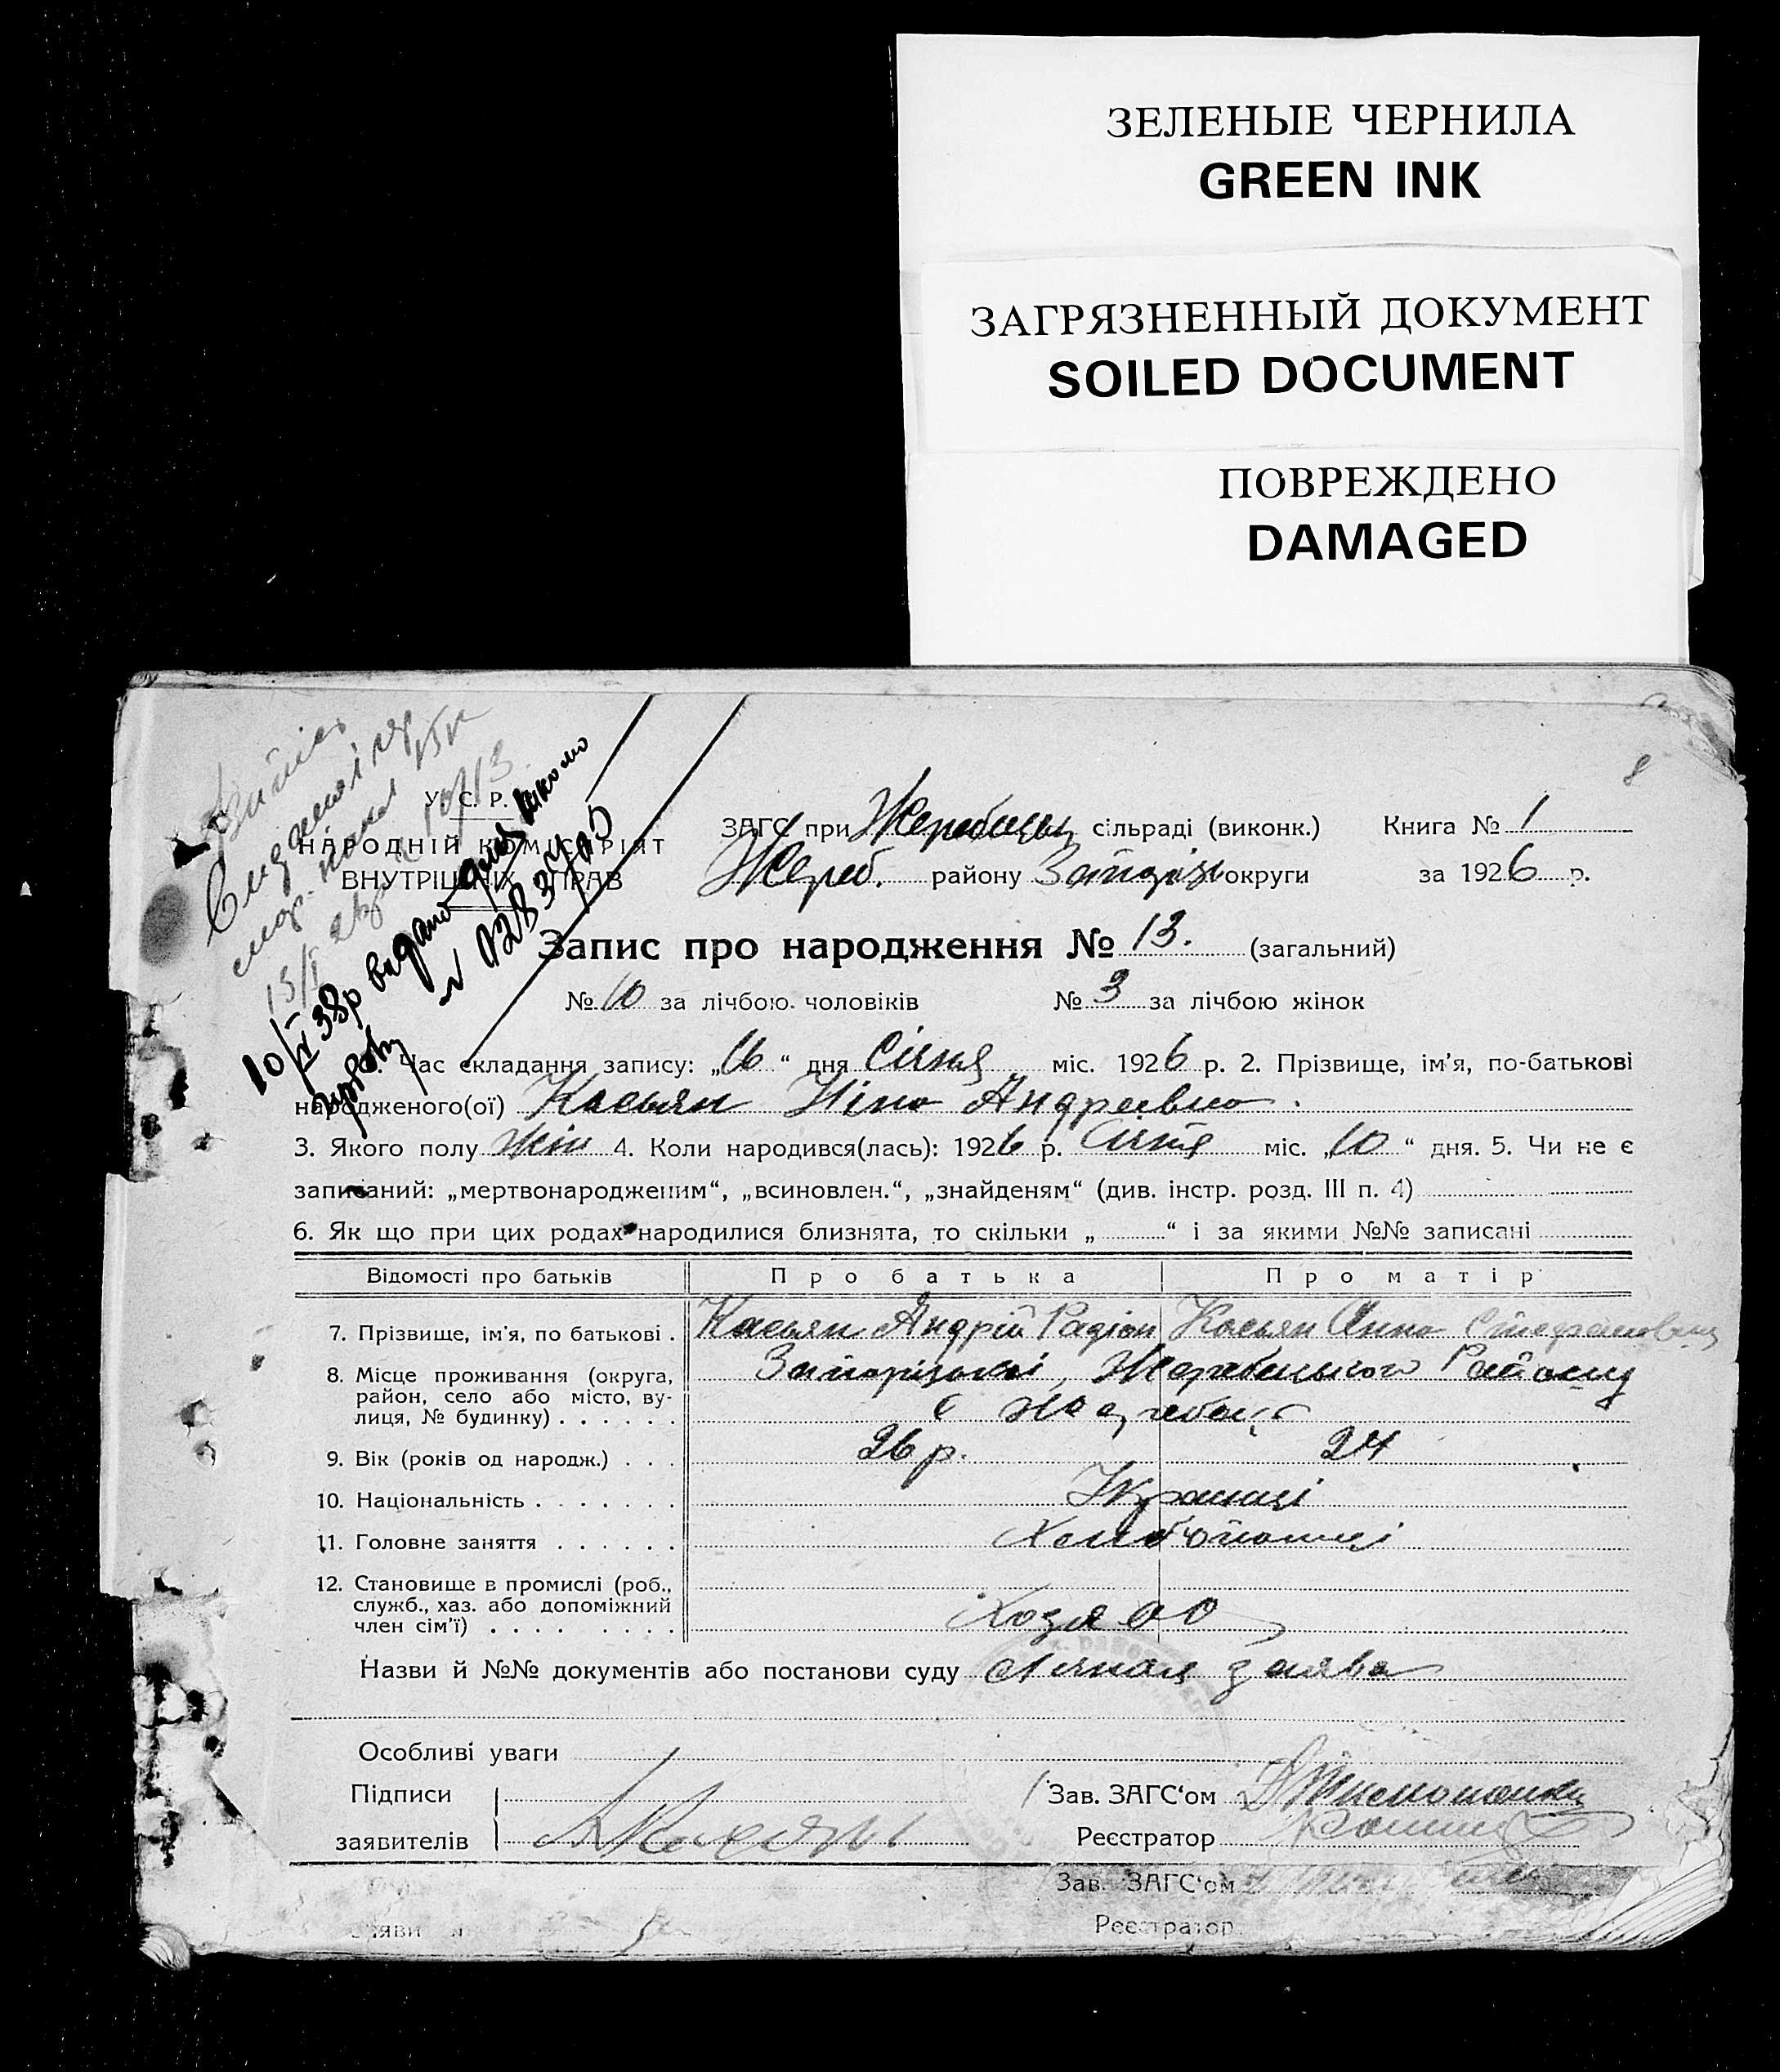 ЗЕЛЕНЫЕ ЧЕРНИЛА
GREEN INK
ЗАГРЯЗНЕННЫЙ ДОКУМЕНТ
SOILED DOCUMENT
ПОВРЕЖДЕНО
DAMAGED
8
У. С. Р. Р.
НАРОДНІЙ КОМІСАРІЯТ
ВНУТРІШНІХ СПРАВ
10/V 38р видано
№ 028
ЗАГС при Жеребецьк сільраді (виконк.) Книга № 1
Жереб. району Запоріз округи за 1926 р.
Запис про народження № 13. (загальний)
№ 10 за лічбою чоловіків № 3 за лічбою жінок
1. Час складання запису: „16“ дня Січня міс. 1926 р. 2. Прізвище, ім'я, по-батькові
народженого(ої) Касьян Ніна Андреівна.
3. Якого полу жін 4. Коли народився(лась): 1926 р. Січня міс. „10“ дня. 5. Чи не є
записаний: „мертвонародженим“, „всиновлен.“, „знайденям“ (див. інстр. розд. III п. 4)
6. Як що при цих родах народилися близнята, то скільки „ “ і за якими №№ записані
Відомості про батьків Про батька Про матір
7. Прізвище, ім'я, по батькові . Касьян Андрій Радіон Касьян Анна Стефановна
8. Місце проживання (округа, Запорізької, Жеребецького Району
район, село або місто, ву-
лиця, № будинку) . . . . . . с Жеребець
9. Вік (років од народж.) . . . 26 р. 24
10. Національність . . . . . . . Українці
11. Головне заняття . . . . . . Хлібопашці
12. Становище в промислі (роб.,
служб., хаз. або допоміжний
член сім'ї) . . . . . . . . Хозяєв
Назви й №№ документів або постанови суду Лічная заява
Особливі уваги
Підписи Зав. ЗАГС'ом
заявителів Реєстратор
Зав. ЗАГС'ом
Реєстратор